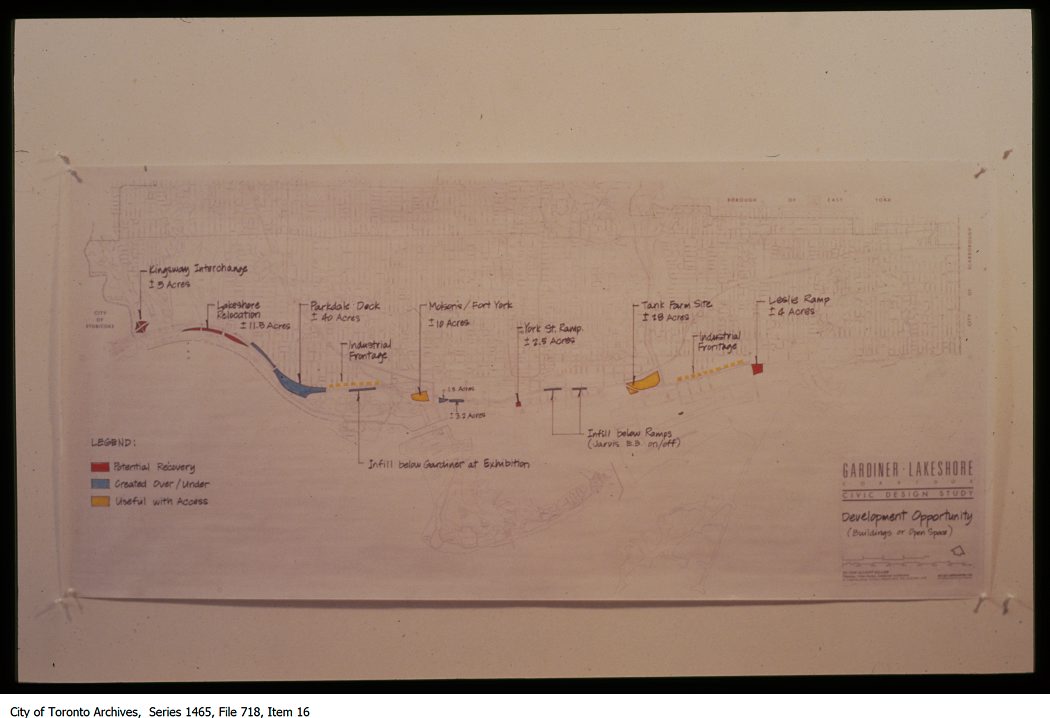 BOROUGH OF EAST YORK
SCARBOROUGH
OF
CITY
CITY
OF
ETOBICOKE
Kingsway Interchange
± 5 Acres
Lakeshore
Relocation
± 11.5 Acres
Parkdale Deck
± 40 Acres
Industrial
Frontage
Molson's / Fort York
± 10 Acres
1.5 Acres
± 3.2 Acres
York St. Ramp.
± 2.5 Acres
Tank Farm Site
± 28 Acres
Industrial
Frontage
Leslie Ramp
± 4 Acres
Infill below Ramps
(Jarvis E.B. on/off)
Infill below Gardiner at Exhibition
LEGEND:
Potential Recovery
Created Over / Under
Useful with Access
GARDINER · LAKESHORE
CORRIDOR
CIVIC DESIGN STUDY
Development Opportunity
(Buildings or Open Space)
City of Toronto Archives, Series 1465, File 718, Item 16